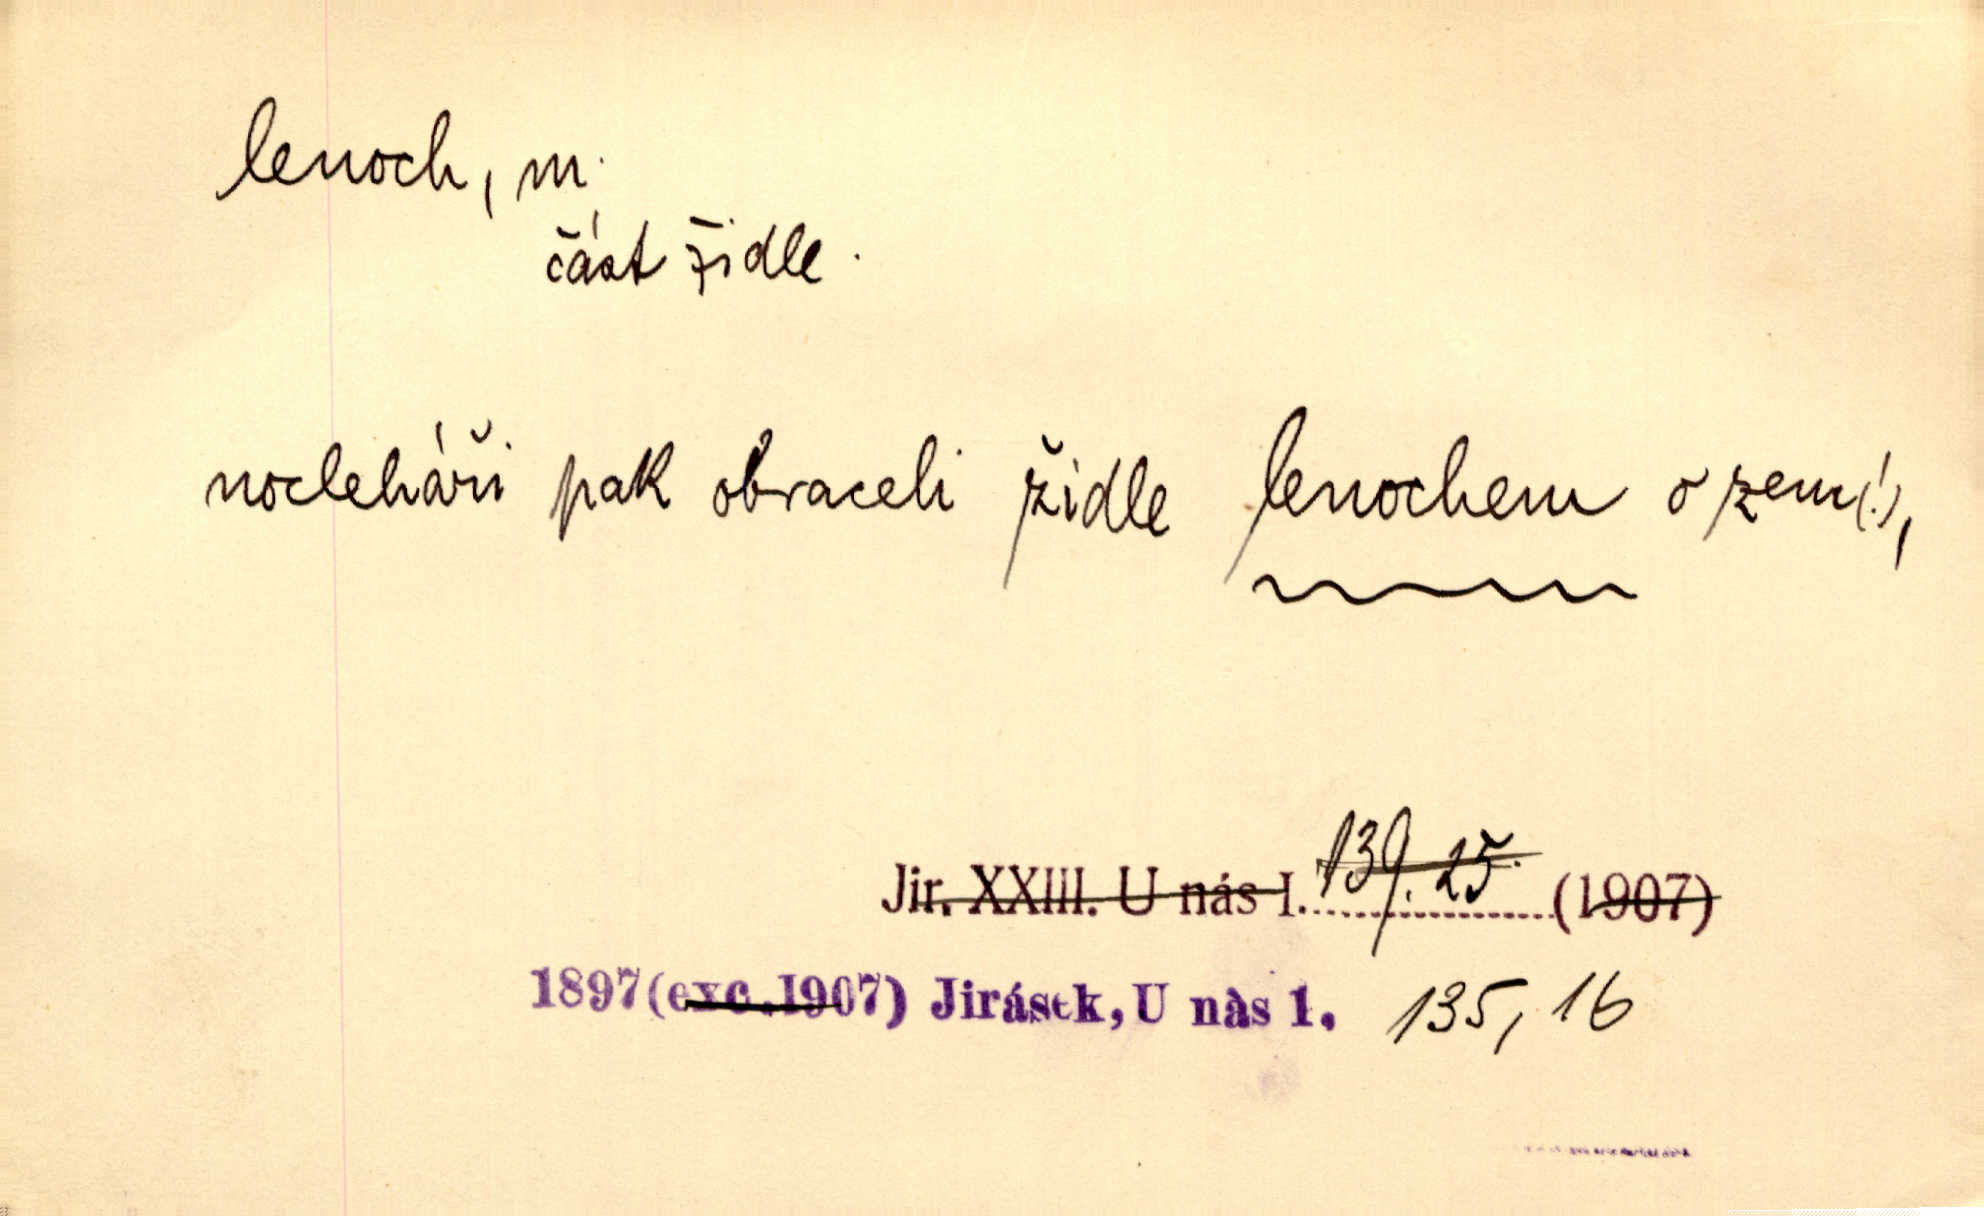 lenoch, m.
část židle.
nocleháři pak obraceli židle lenochem o zem(!),
Jir. XXIII. U nás I. 139. 25. (1907)
1897 (exc. I907) Jirásek, U nàs 1. 135, 16